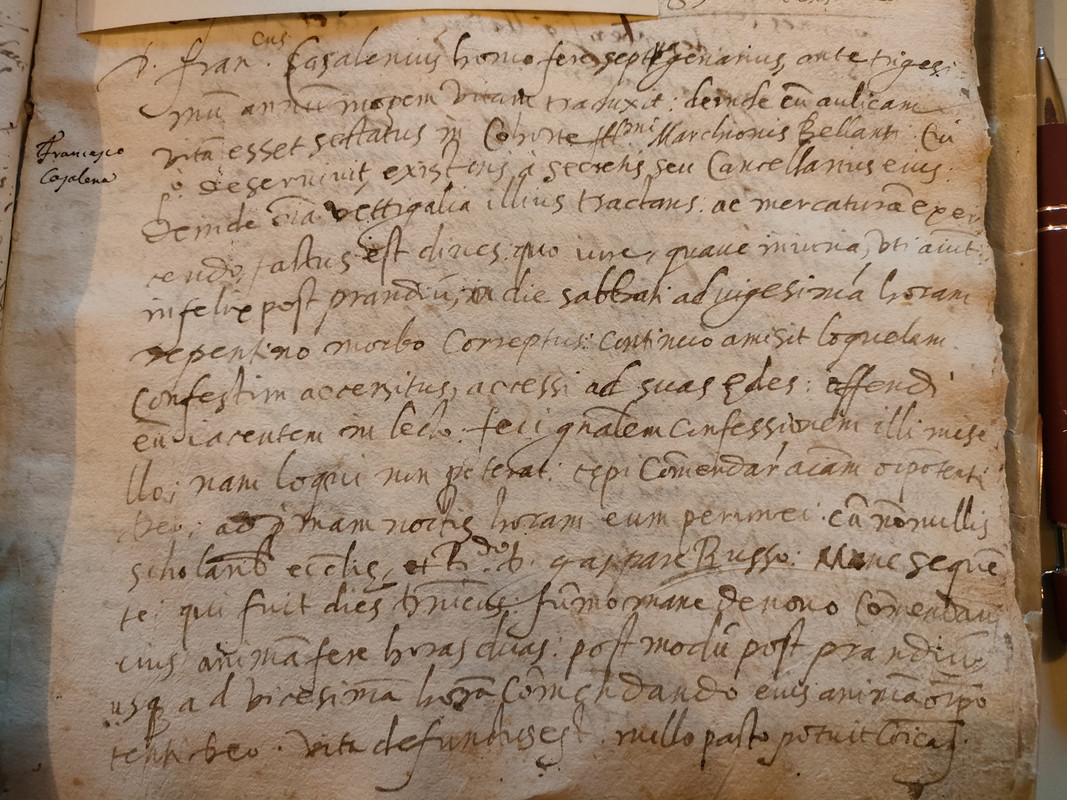 cus
D. Fran. Casalenius homo fere septuagenarius ante trigesi
mū annū inopem vitam traduxit: deinde cū aulicam
vitā esset sectatus in Cohorte Illmi Marchionis Bellanti cui
deseruiuit, existens a secretis seu Cancellarius eius:
Francesco
Casalena
Deinde oīa vettigalia illius tractans: ac mercaturā exer
cendo, factus est diues, quo iure, quaue iniuria, vti aiūt:
infelix post prandiū, in die sabbati ad vigesimā horam
repentino morbo Correptus: continuo amisit loquelam
Confestim accersitus, accessi ad suas ędes: offendi
eū iacentem in lecto: feci gnālem confessionem illi mise
llo; nam loqui non poterat: cepi Comendar aīam oīpotenti
Deo; ad primam noctis horam eum permnei cū nōnullis
scholarib ecclię, et Rdo D. gaspare Russo: Mane sequē
te; qui fuit dies summo mane denovo Comendaui
eius animā fere horas duas: post modū post prandiū
usq ad vicesimā horā Comendando eius animā oīpo
tenti deo. vita defunctus est. nullo pacto potuit